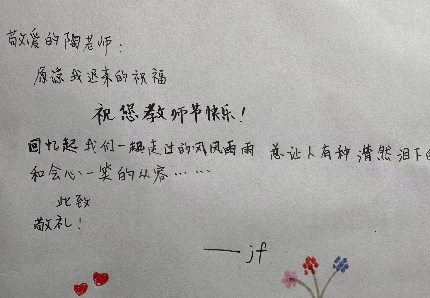 敬爱的陶老师：
原谅我迟来的祝福
祝您教师节快乐！
回忆起我们一起走过的风风雨雨 总让人有种潸然泪下的
和会心一笑的从容……
此致
敬礼！
——jf